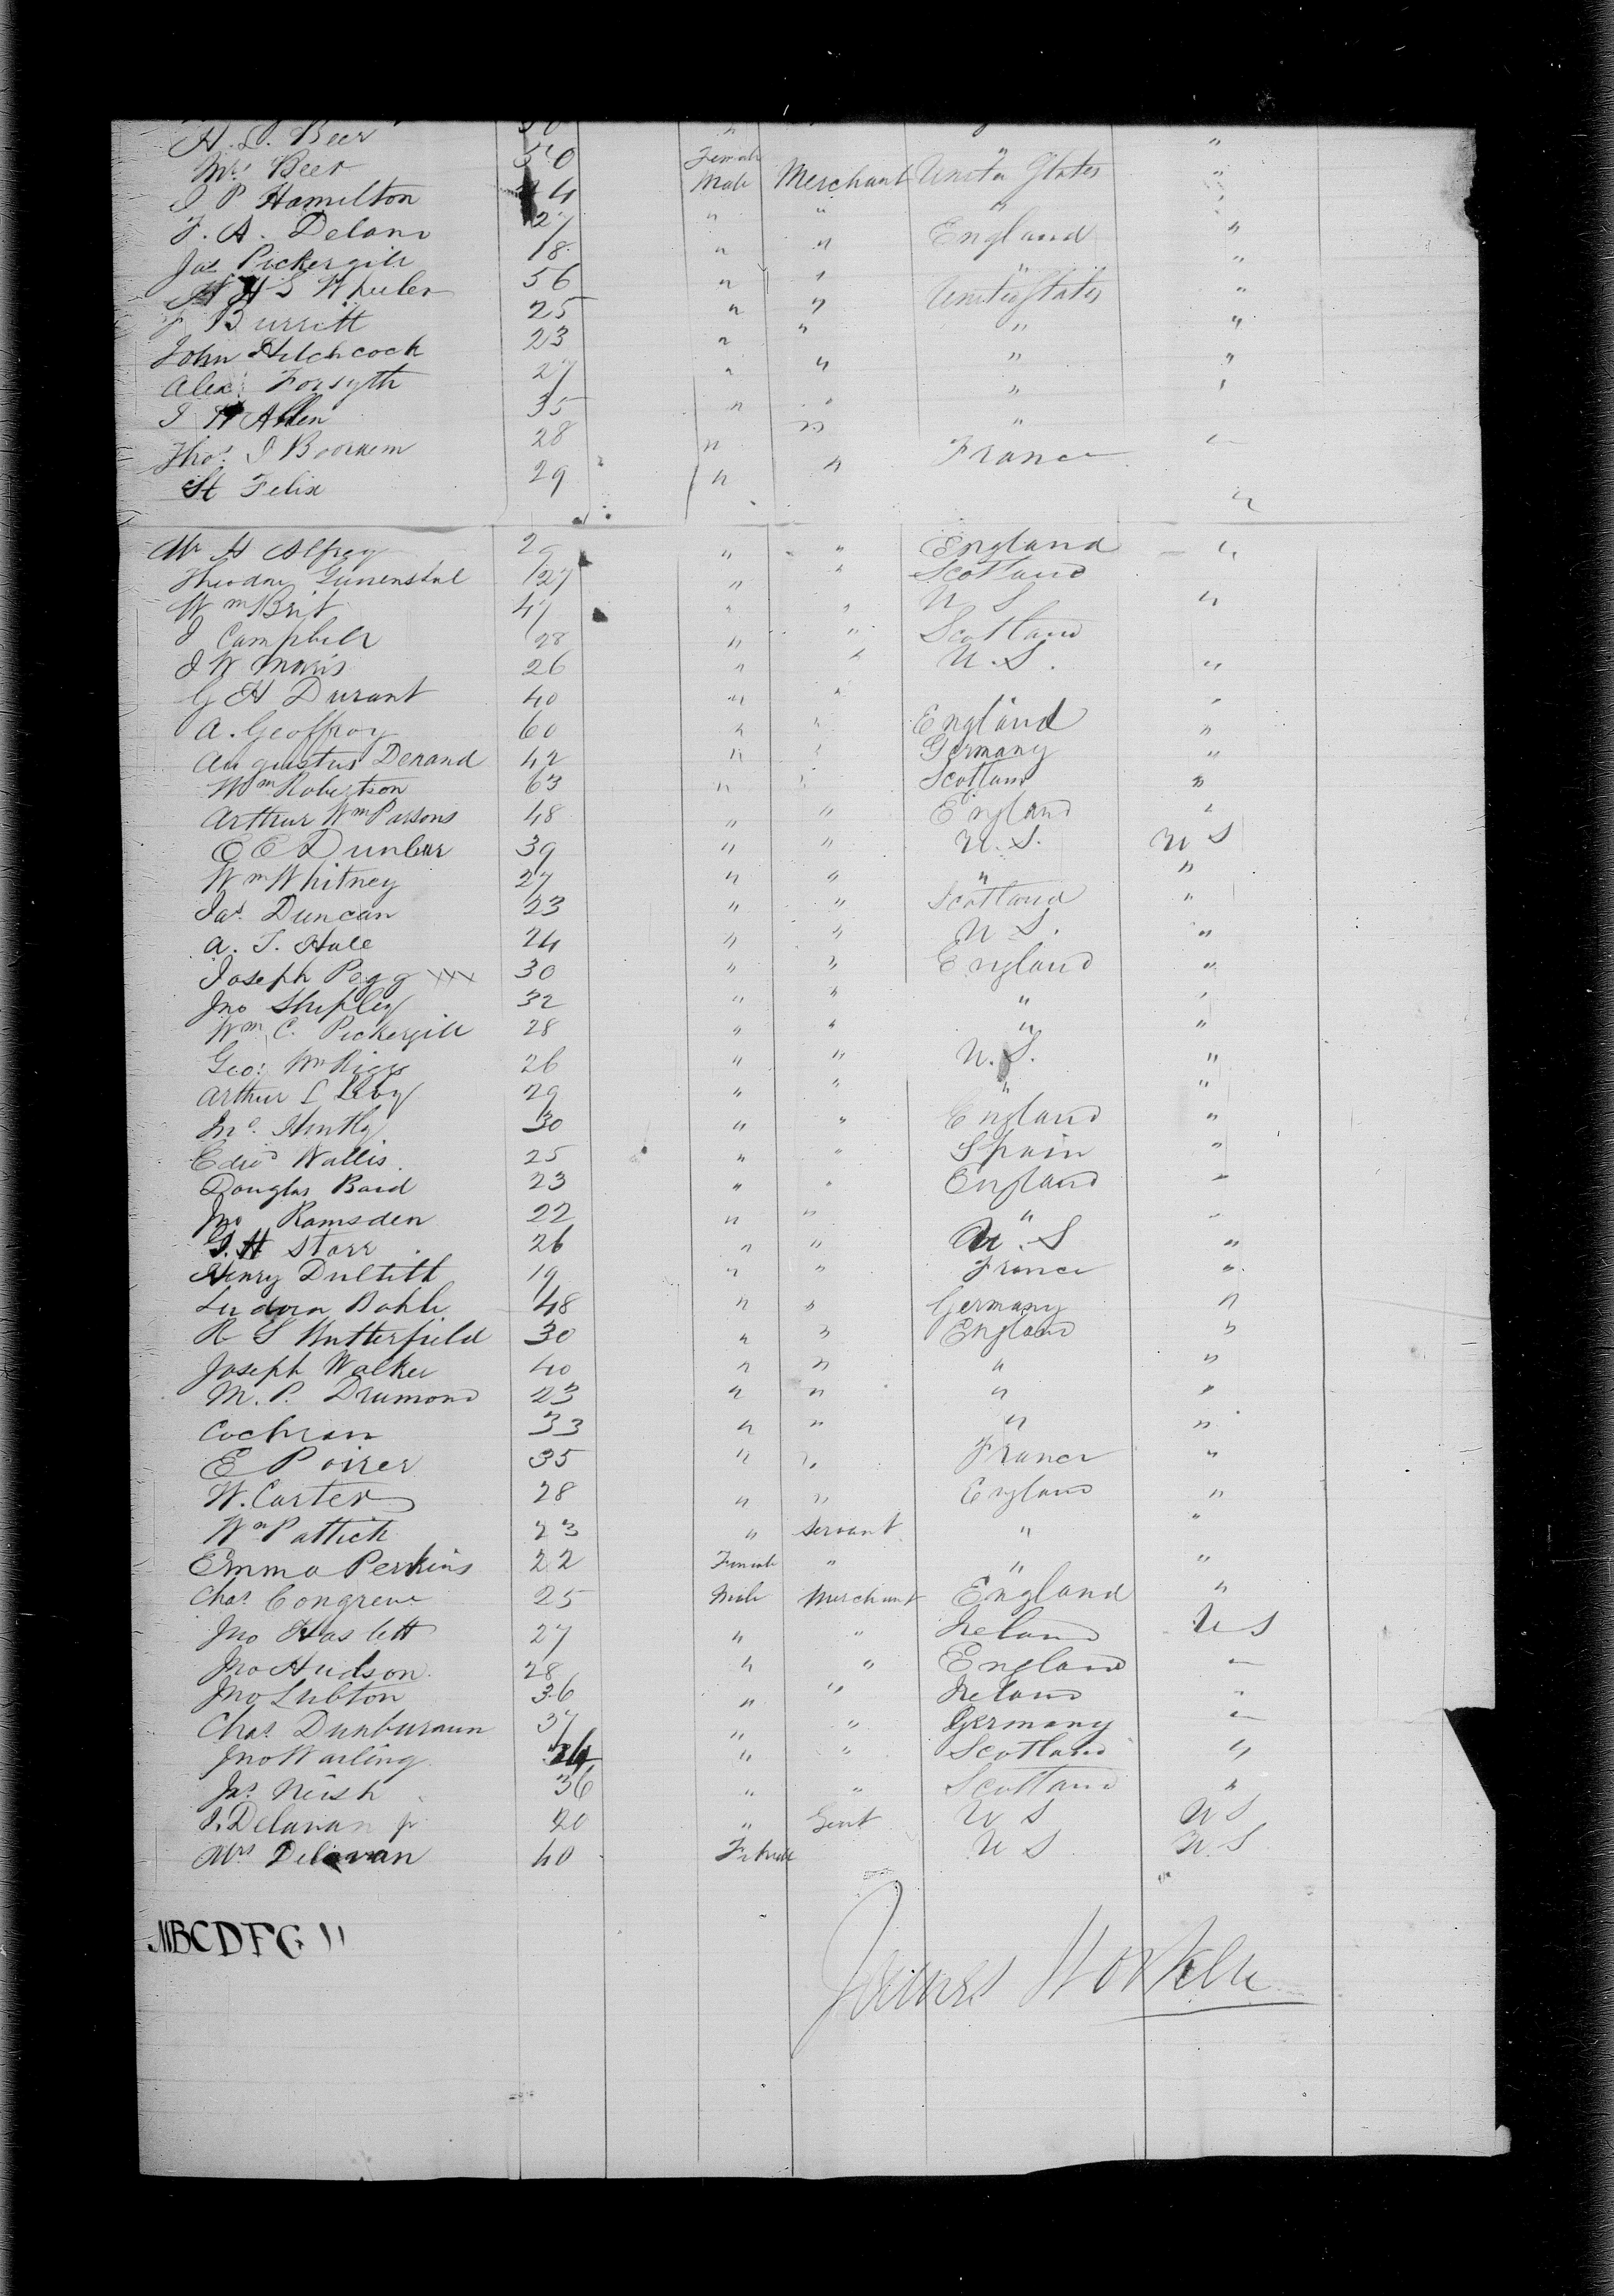 A. D. Beer 30 " " "
Mrs Beer 50 Female " "
J P Hamilton 24 Male Merchant United States "
F. A. Delano 27 " " " "
Jas Pickergill 18 " " England "
H S Wheeler 56 " " " "
J Burritt 25 " " United States "
John Hitchcock 23 " " " "
Alex Forsyth 27 " " " "
J H Allen 35 " " " "
Thos J Booraem 28 " " "
St Felix 29 " " France "
Mr H Alfrey 29 " " England "
Theodore 27 " " Scotland
Wm Brit 47 " " U S "
J Campbell 28 " " Scotland
J W Maris 26 " " U.S. "
G H Durant 40 " " "
A. Geoffroy 60 " " England "
Augustus Derand 42 " " Germany "
Wm Robertson 63 " " Scotland "
Arthur Wm Parsons 48 " " England "
E E Dunbar 39 " " U.S. U S
Wm Whitney 27 " " " "
Jas Duncan 23 " " Scotland "
A. T. Hale 24 " " U S. "
Joseph Pegg xxx 30 " " England "
Jno Shipley 32 " " " "
Wm C. Pickergill 28 " " " "
Geo: Wm Riggs 26 " " U.S. "
Arthur L Levy 29 " " " "
Jno. Huntly 30 " " England "
Edwd Wallis 25 " " Spain "
Douglas Baird 23 " " England "
Jno Ramsden 22 " " " "
G. H Starr 26 " " U.S "
Henry Dultitt 19 " " France "
Bahli 48 " " Germany "
R S Butterfield 30 " " England "
Joseph Walker 40 " " " "
M. P. Drumond 23 " " " "
Cochran 33 " " " "
E Poirer 35 " " France "
W. Carter 28 " " England "
Wm Pattick 23 " Servant " "
Emma Perkins 22 Female " " "
Chas Congreve 25 Male Merchant England "
Jno Haslett 27 " " Ireland U S
Jno Hudson 28 " " England "
Jno Lubton 36 " " Ireland "
Chas Dunburaun 37 " " Germany "
Jno Warling 34 " " Scotland "
Jas Nish 36 " " Scotland "
J. Delavan jr 20 " Gent U S U S
Mrs Delavan 40 Female U S U.S
ABCDFG
James